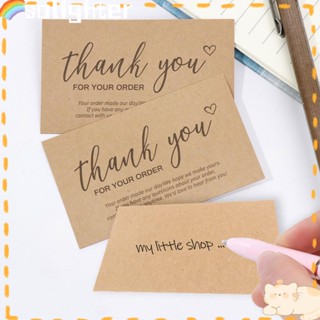 sunlighter
thank you
FOR YOUR ORDER
Your order made our day,
If you have any
contact with us
thank you
FOR YOUR ORDER
Your order made our day we hope we make yours.
If you have any questions about your order,
contact with us anytime. We'd love to hear from you!
my little shop ...